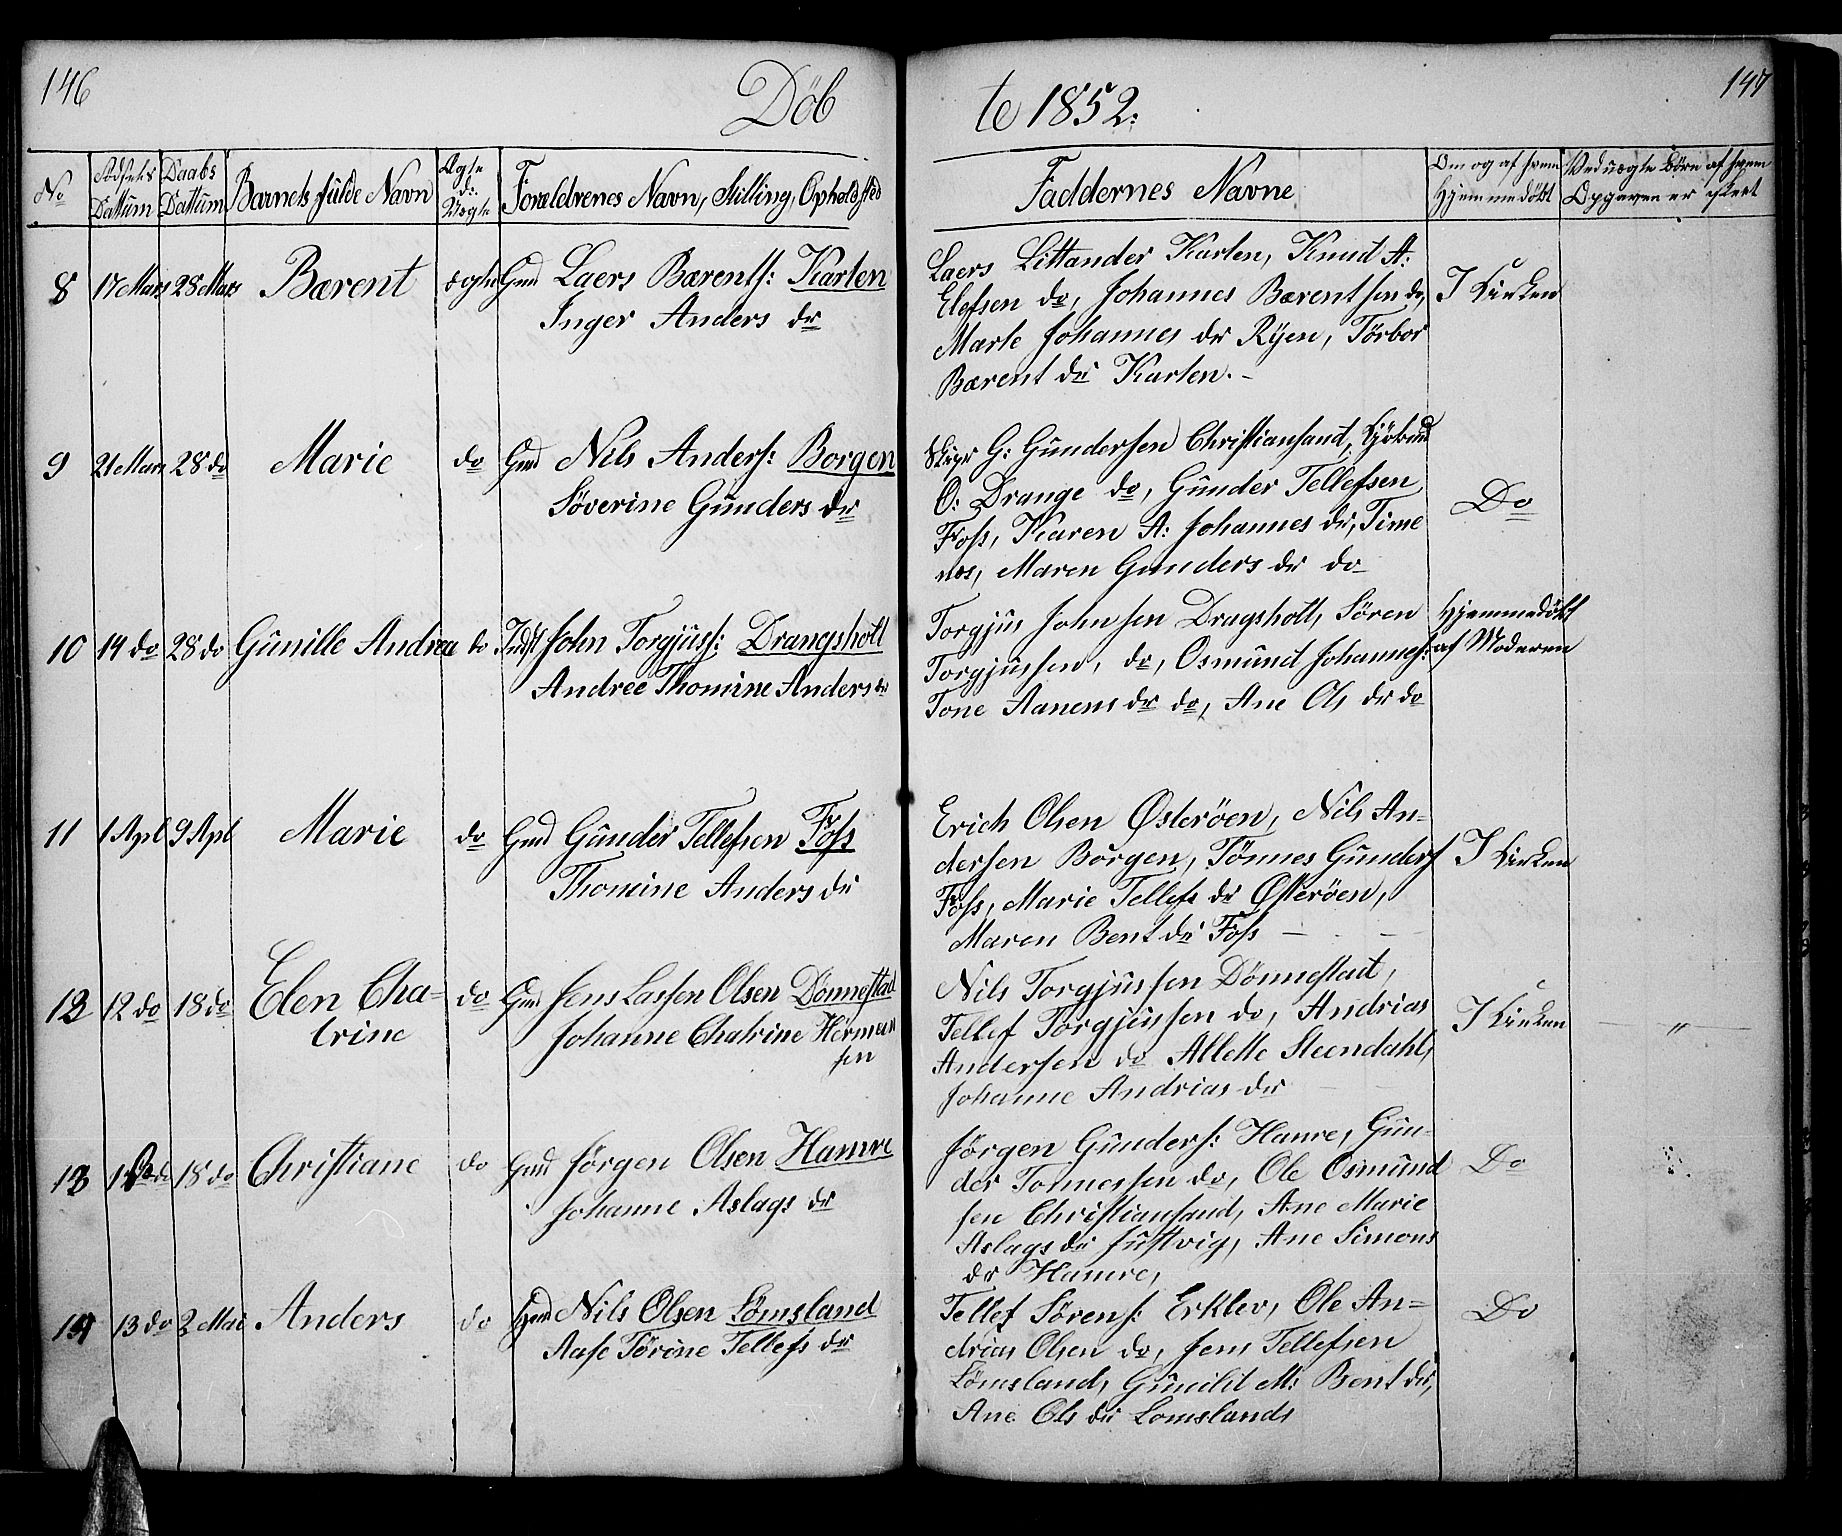 146
Döb
te 1852.
147
No
Fødsels Dattum
Daabs Dattum
Barnets fulde Navn
Ægte do Uægte
Forældrenes Navn, Stilling, Opholdsted
Faddernes Navne
Om og af hvem Hjemmedöbt
Ved uægte Börn af hvem Opgaven er skeet
8 17 Mars 28 Mars Bærent ægte Gmd Laers Bærents: Karten
Inger Anders dr
Laers Littander Karten, Knud A:
Elefsen do, Johannes Bærentsen do,
Marte Johannes dr Ryen, Törbor
Bærent dr Karten.-
I Kirken
9 21 Mars 28 do Marie do Gmd Nils Anders: Borgen
Söverine Gunders dr
Skipr G: Gundersen Christiansand,
O: Drange do, Gunder Tellefsen
Foss, Karen A: Johannes dr, Time
nes, Maren Gunders dr do
Do
10 14 do 28 do Gunille Andrea do Inds John Torgjuss: Drangsholt
Andree Thomine Anders dr
Torgjus Johnsen Dragsholt, Sören
Torgjussen, do, Osmund Johanness:
Tone Aanens dr do, Ane Ols dr do
Hjemmedöbt
af Moderen
11 1 Apl 9 Apl Marie do Gmd Gunder Tellefsen Foss
Thomine Anders dr
Erich Olsen Østeröen, Nils An-
dersen Borgen, Tönnes Gunders
Foss, Marie Tellefs dr Østeröen,
Maren Bent dr Foss
I Kirken
12 12 do 18 do Elen Cha-
trine
do Gmd Jens Lassen Olsen Dönnestad
Johanne Chatrine Herman
sen
Nils Torgjussen Dönnestad,
Tellef Torgjussen do, Andrias
Andersen do Allette Steendahl,
Johanne Andrias dr
I Kirken
"
13 do 18 do Christiane do Gmd Jörgen Olsen Hamre
Johanne Aslags dr
Jörgen Gunders: Hamre, Gun-
der Tonnessen do, Ole Osmund
sen Christiansand, Ane Marie
Aslags dr Justvig, Ane Simons
dr Hamre,
Do
14 13 do 2 Mai Anders do Gmd Nils Olsen Lömsland
Aase Törine Tellefs dr
Tellef Sörens: Erklev, Ole An-
drias Olsen do, Jens Tellefsen
Lömsland, Gunild M: Bent dr,
Ane Ols dr Lomslands
Do